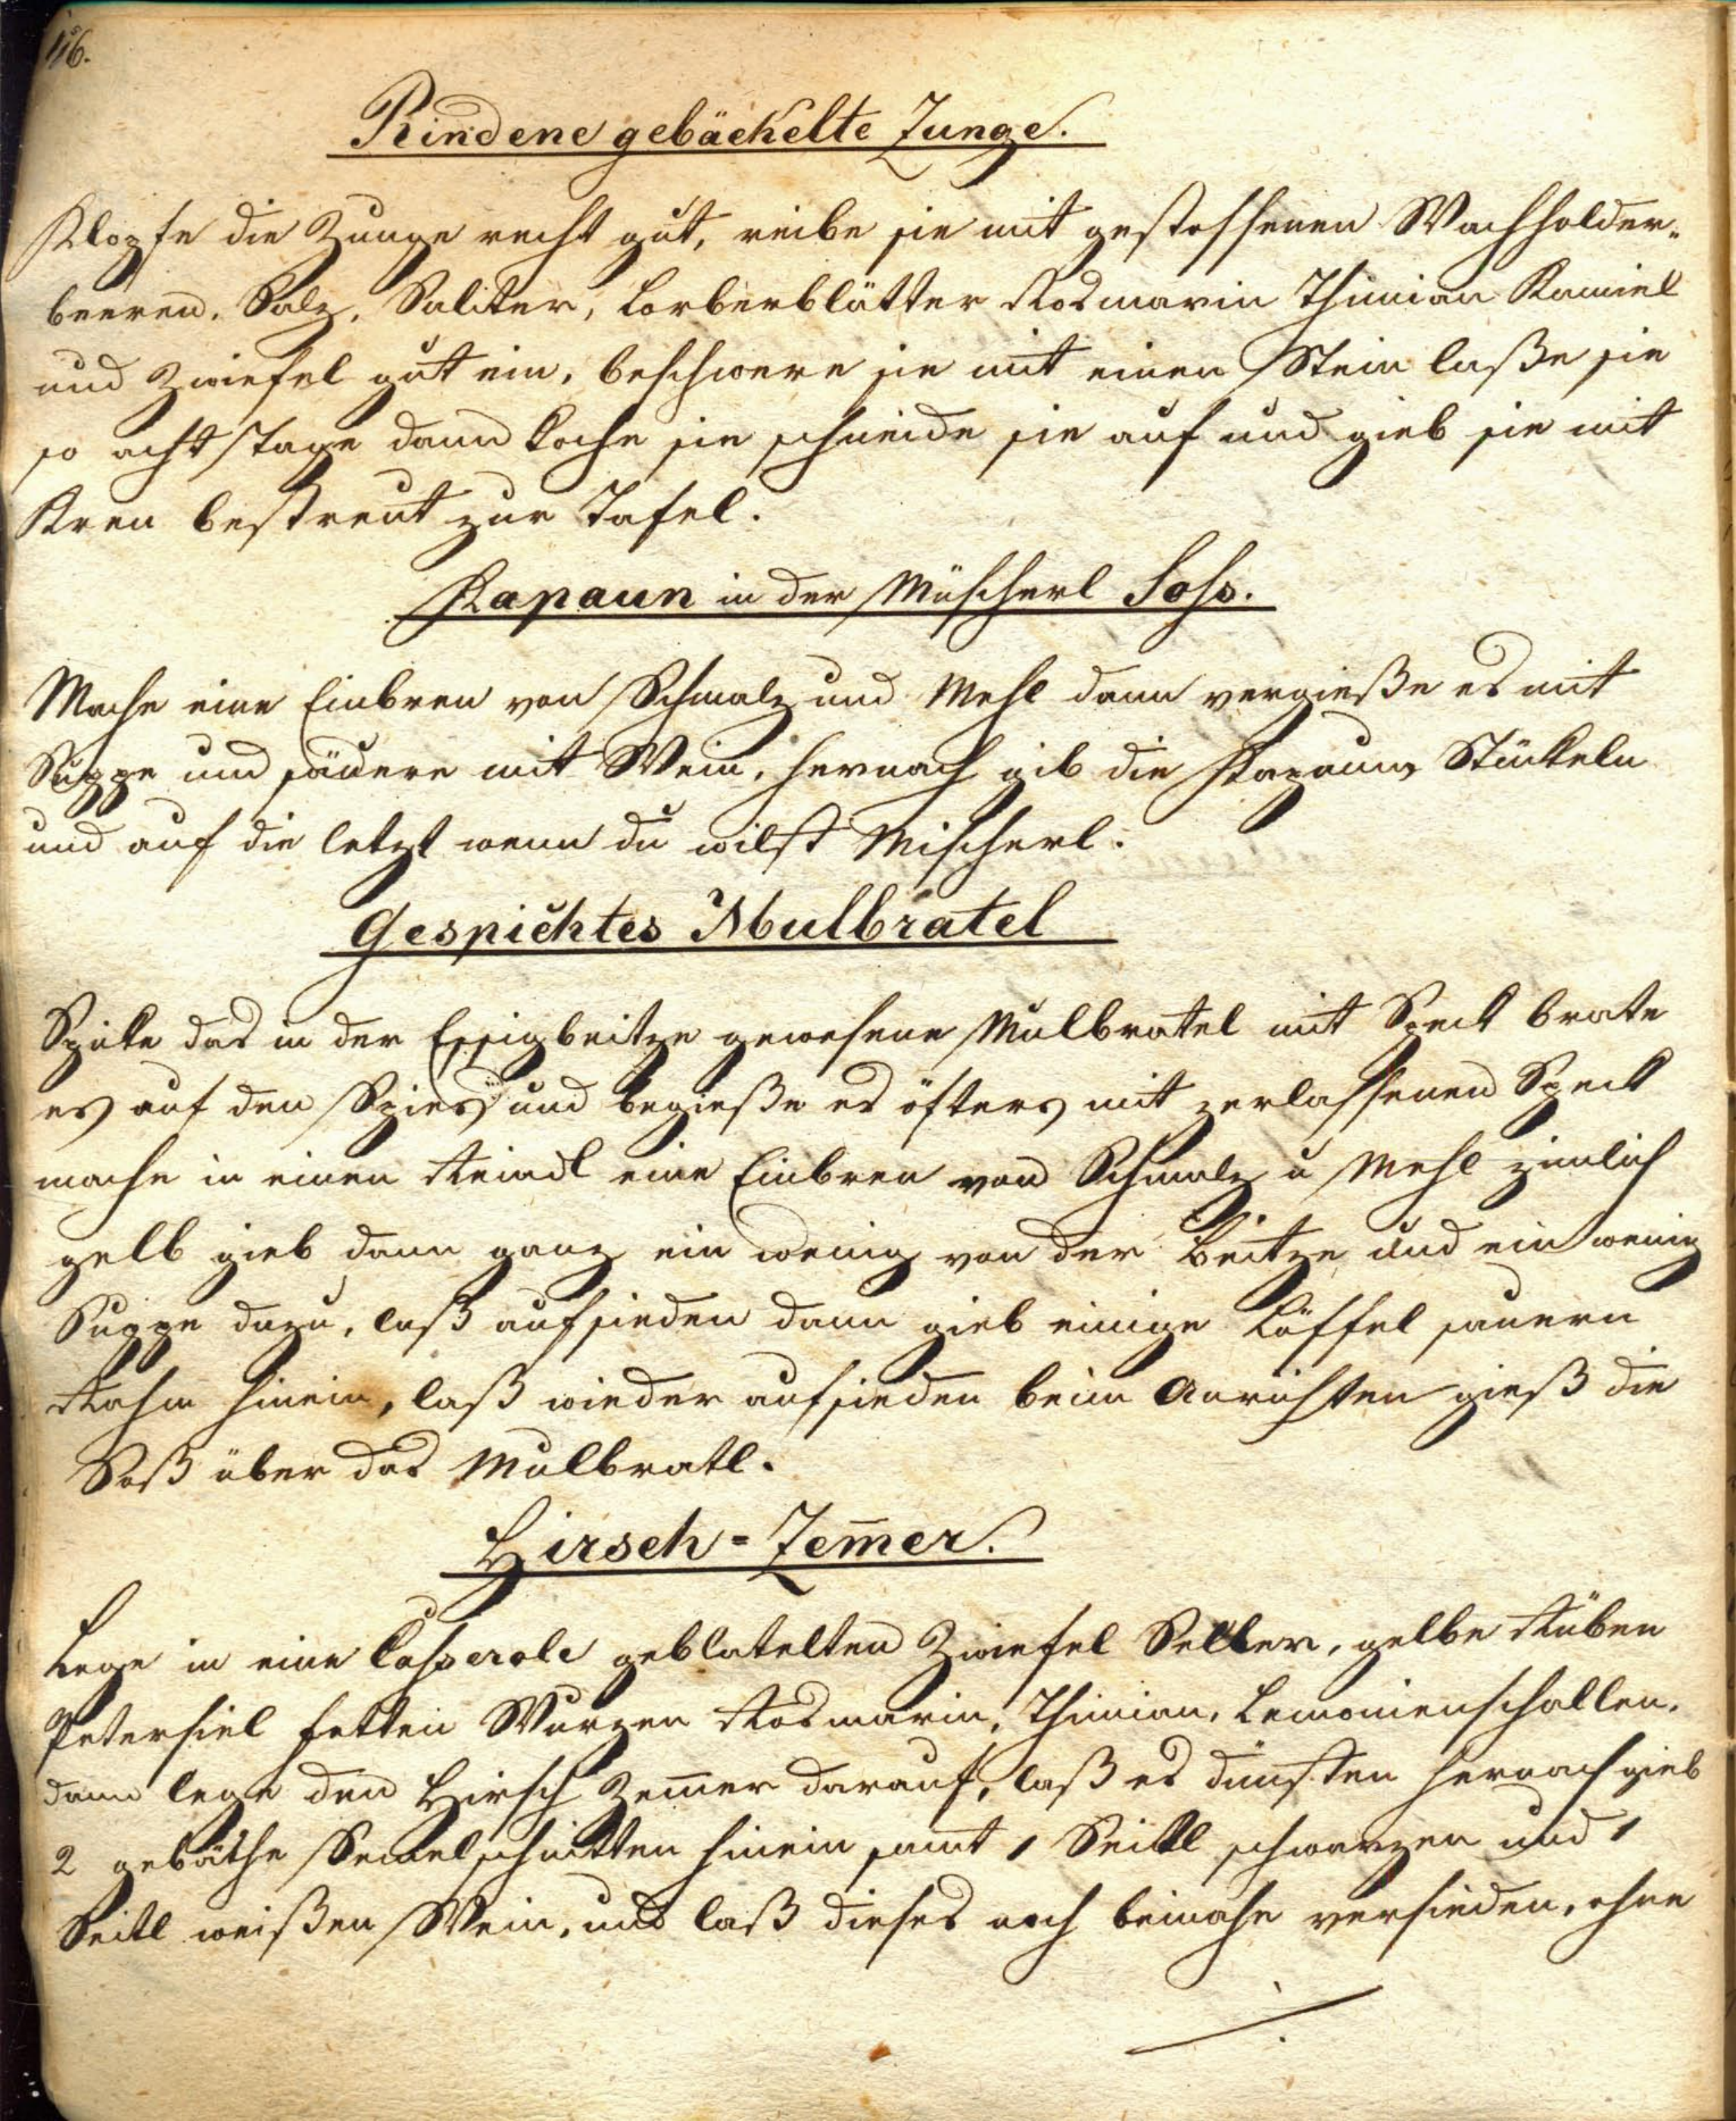 116.
Rindene gebäckelte Zunge.
Klopfe die Zunge recht gut, reibe sie mit gestossenen Wachholder-
beeren, Salz, Saliter, Lorberblätter Rosmarin Thimian Kamiel
und Zwiefel gut ein, beschwere sie mit einen Stein laße sie
so acht Tage dann koche sie schneide sie auf und gieb sie mit
Kren bestreut zur Tafel.
Kapaun in der Müscherl Soß.
Mache eine Einbren von Schmalz und Mehl dann vergieße es mit
Suppe und säuere mit Wein, hernach gib die Kapaun Stückeln
und auf die letzt wenn du wilst Mischerl.
Gespicktes Mulbratel
Spicke das in der Essigbeitze gewesene Mulbratel mit Speck brate
es auf den Spies und begieße es öfters mit zerlassenen Speck
mache in einen Reindl eine Einbren von Schmalz u Mehl zimlich
gelb gieb dann ganz ein wenig von der Beitze und ein wenig
Suppe dazu, laß aufsieden dann gieb einige Löffel sauern
Rahm hinein, laß wieder aufsieden beim Anrichten gieß die
Soß über das Mulbratl.
Hirsch=Zem̅er.
Lege in eine Casserole geblatelten Zwiefel Seller, gelbe Rüben
Petersiel fetten Wurzen Rosmarin, Thimian, Lemonienschallen,
dann lege den Hirsch Zem̅er darauf, laß es dünsten hernach gieb
2 gebäthe Semelschnitten hinein samt 1 Seitl schwarzen und 1
Seitl weißen Wein, und laß dieses noch beinahe versieden, ohne
./.